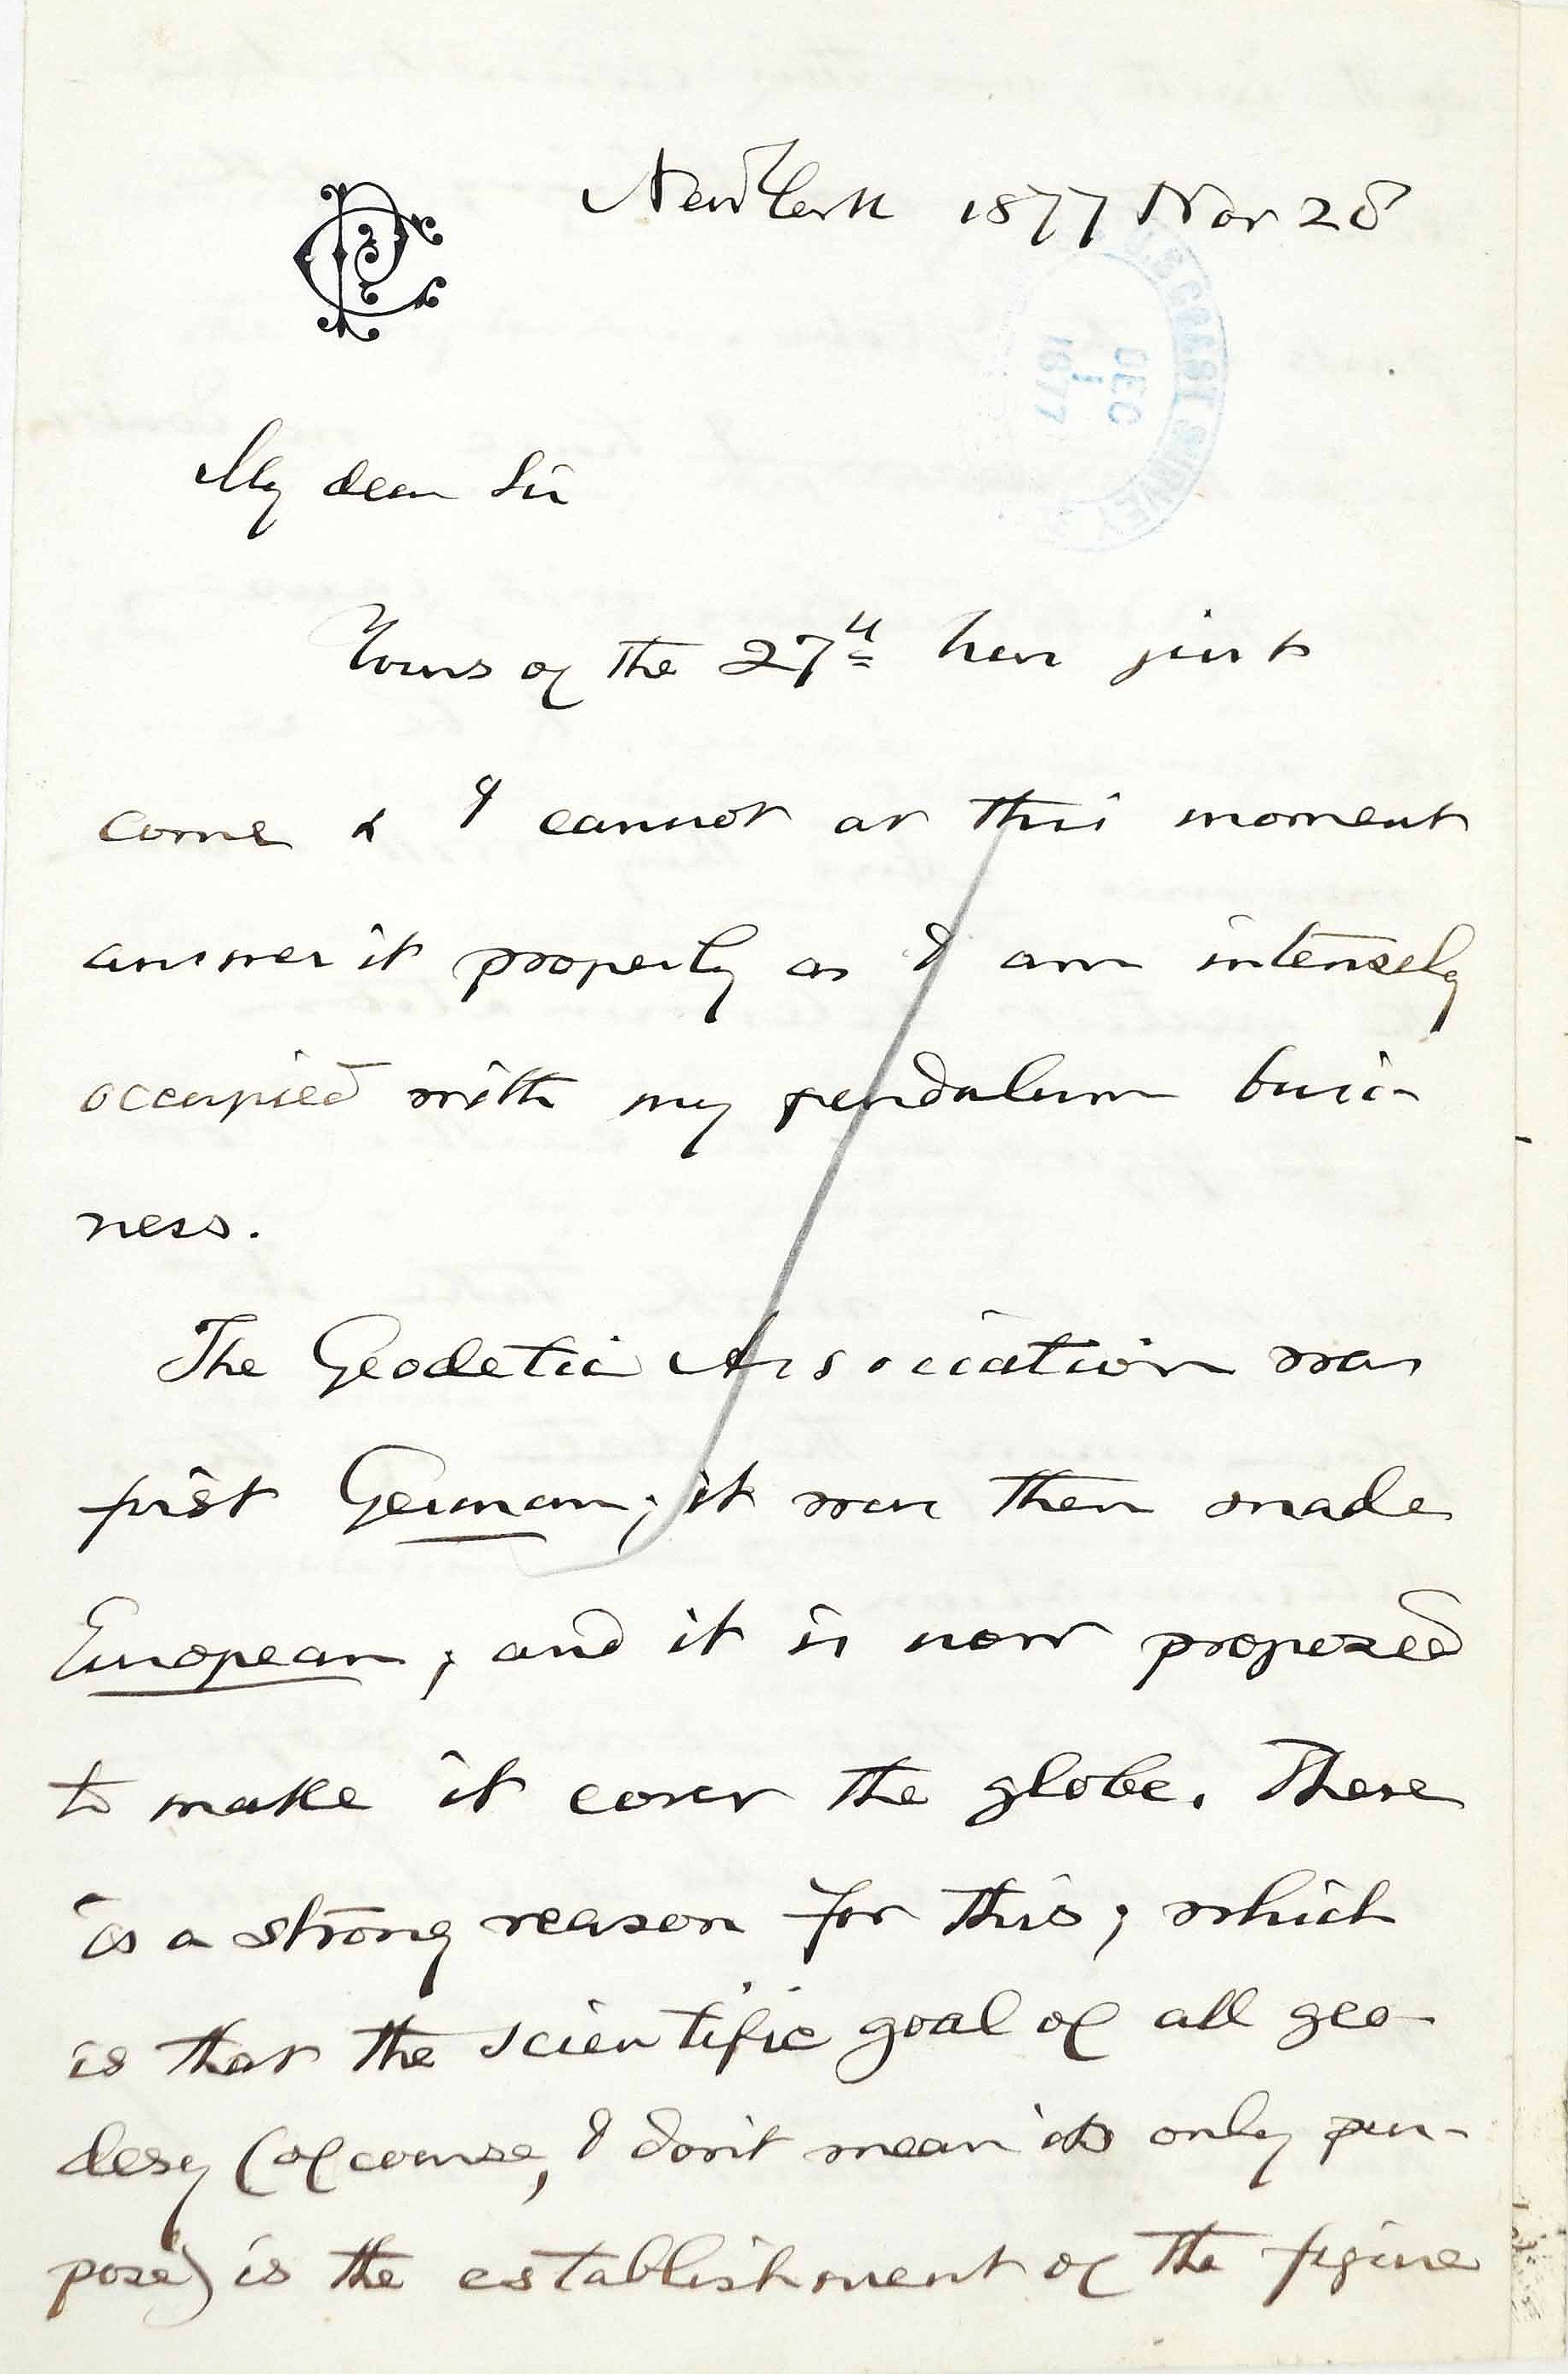 New York 1877 Nov 28
CP
U.S. COAST SURVEY
DEC
1
1877
My dear Sir
Yours of the 27th has just
come & I cannot at this moment
answer it properly as I am intensely
occupied with my pendulum busi-
ness.
The Geodetic Association was
first German; it was then made
European; and it is now proposed
to make it cover the globe. There
is a strong reason for this; which
is that the scientific goal of all geo-
desy (of course, I don't mean its only pur-
pose) is the establishment of the figure